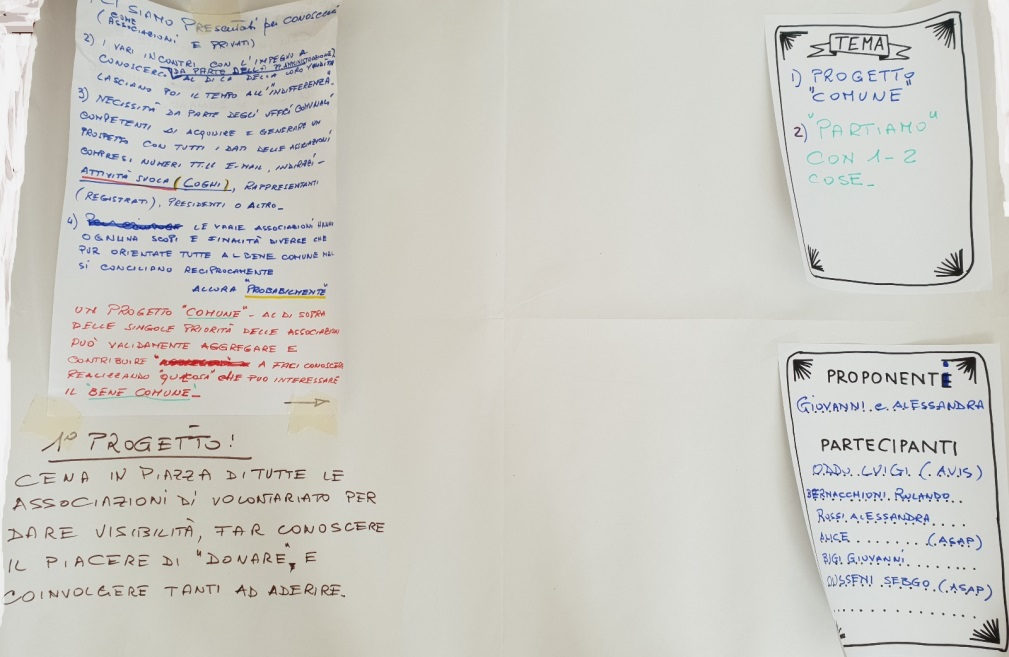 CI SIAMO PRESENTATI per CONOSCERCI
(COME
ASSOCIAZIONI E PRIVATI)
2) I VARI INCONTRI CON L'IMPEGNI A
CONOSCERCI DA PARTE DELLA P. AMMINISTRAZIONE)
AL DI LA DELLA LORO VALIDITÀ
LASCIANO POI IL TEMPO ALL'"INDIFFERENZA".
3) NECESSITÀ DA PARTE DEGLI UFFICI COMUNALI
COMPETENTI DI ACQUIRE E GENERARE UN
PROSPETTO CON TUTTI I DATI DELLE
COMPRESI NUMERI E-MAIL, INDIRIZZI -
ATTIVITÀ SVOLTA (LOGHI), RAPPRESENTANTI
(REGISTRATI), PRESIDENTI O ALTRO_
4) LE VARIE ASSOCIAZIONI HANNO
OGNUNA SCOPI E FINALITÀ DIVERSE CHE
PUR ORIENTATE TUTTE AL BENE COMUNE MAL
SI CONCILIANO RECIPROCAMENTE
ALLORA "PROBABILMENTE"
UN PROGETTO "COMUNE" - AL DI SOPRA
DELLE SINGOLE PRIORITÀ DELLE ASSOCIAZIONI
PUÒ VALIDAMENTE AGGREGARE E
CONTRIBUIRE A FARCI CONOSCERE
REALIZZANDO "QUALCOSA" CHE PUO INTERESSARE
IL "BENE COMUNE"_
1° PROGETTO!
CENA IN PIAZZA DI TUTTE LE
ASSOCIAZIONI DI VOLONTARIATO PER
DARE VISIBILITÀ, FAR CONOSCERE
IL PIACERE DI "DONARE", E
COINVOLGERE TANTI AD ADERIRE.
TEMA
1) PROGETTO
"COMUNE"
2) "PARTIAMO"
CON 1-2
COSE_
PROPONENTI
GIOVANNI e ALESSANDRA
PARTECIPANTI
ODDU LUIGI (AVIS)
BERNACCHIONI ROLANDO
ROSSI ALESSANDRA
ALICE (ASAP)
BIGI GIOVANNI
OUSSENI SEBGO (ASAP)